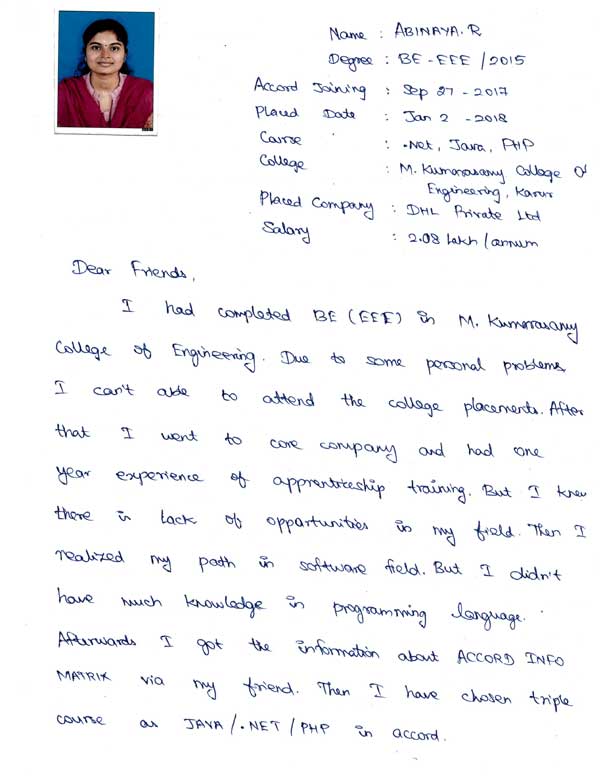 Name : ABINAYA.R
Degree : BE-EEE/2015
Accord Joining : Sep 27-2017
Placed Date : Jan 2-2018
Course : .Net, Java, PHP
College : M. Kumarasamy College Of
Engineering, Karur
Placed Company : DHL Private Ltd
Salary : 2.08 Lakh/annum
Dear Friends,
I had completed BE (EEE) in M. Kumarasamy
College of Engineering. Due to some personal problems
I can't able to attend the college placements. After
that I went to core company and had one
year experience of apprenticeship training. But I knew
there is lack of opportunities in my field. Then I
realized my path in software field. But I didn't
have much knowledge in programming language.
Afterwards I got the information about ACCORD INFO
MATRIX via my friend. Then I have chosen triple
course as JAVA/.NET/PHP in accord.